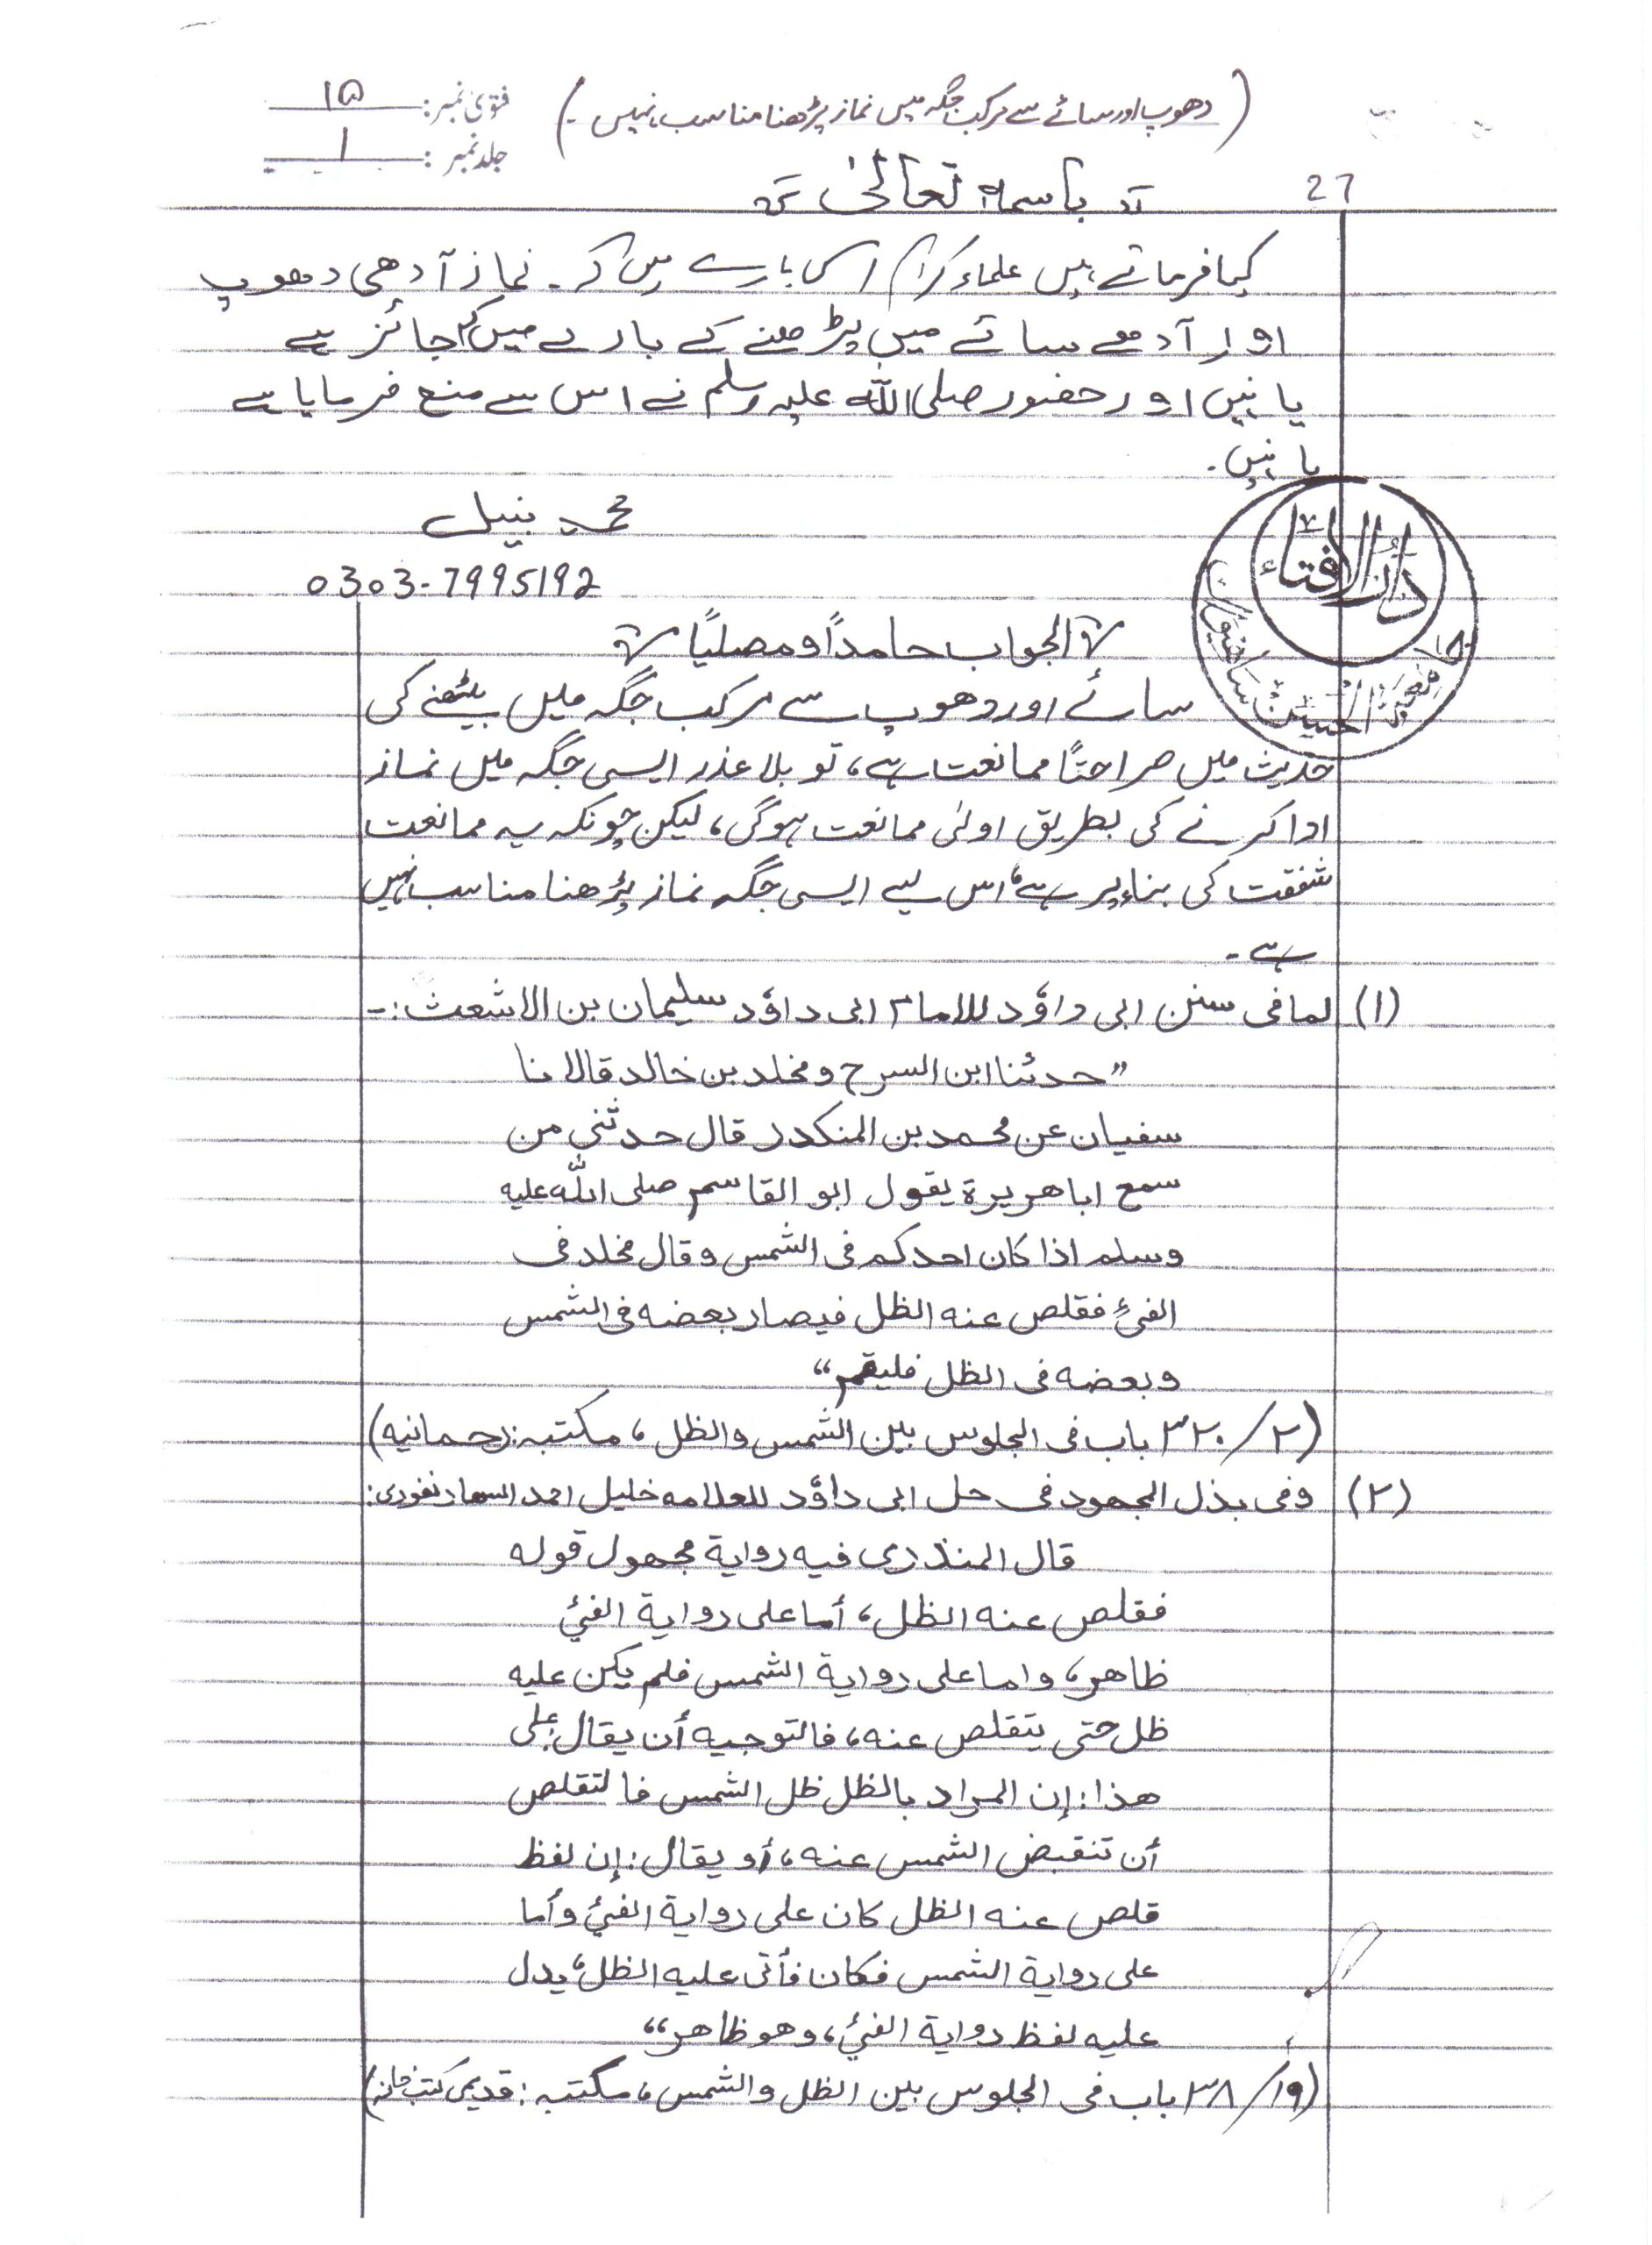 (دھوپ اور سائے سے مرکب جگہ میں نماز پڑھنا مناسب نہیں۔)
فتویٰ نمبر: ۱۵
جلد نمبر: ۱
27
باسمہ تعالیٰ
کیا فرماتے ہیں علماء کرام اس بارے میں کہ۔ نماز آدھی دھوپ
اور آدھے سائے میں پڑھنے کے بارے میں کہ جائز ہے
یا نہیں اور حضور صلی اللہ علیہ وسلم نے اس سے منع فرمایا ہے
یا نہیں۔
محمد نبیل
0303-7995192
دارُالافتاء
الجواب حامداً و مصلیًا
سائے اور دھوپ سے مرکب جگہ میں بیٹھنے کی
حدیث میں صراحتًا ممانعت ہے، تو بلا عذر ایسی جگہ میں نماز
ادا کرنے کی بطریق اولیٰ ممانعت ہوگی، لیکن چونکہ یہ ممانعت
شفقت کی بناء پر ہے، اس لیے ایسی جگہ نماز پڑھنا مناسب نہیں
ہے۔
(۱) لما فی سنن ابی داؤد للامام ابی داؤد سلیمان بن الاشعث:-
”حدثنا ابن السرح و مخلد بن خالد قالا نا
سفیان عن محمد بن المنکدر قال حدثنی من
سمع ابا ھریرۃ یقول ابو القاسم صلی اللہ علیہ
وسلم اذا کان احدکم فی الشمس وقال مخلد فی
الفئ فقلص عنہ الظل فیصار بعضہ فی الشمس
و بعضہ فی الظل فلیقم“
(۲/۳۲۰ باب فی الجلوس بین الشمس والظل، مکتبہ: رحمانیہ)
(۲) وفی بذل المجھود فی حل ابی داؤد للعلامہ خلیل احمد السھارنفوری:
قال المنذری فیہ روایۃ مجھول قولہ
فقلص عنہ الظل، أما علی روایۃ الفئ
ظاھر، واما علی روایۃ الشمس فلم یکن علیہ
ظل حتی یتقلص عنہ، فالتوجیہ أن یقال علی
ھذا: إن المراد بالظل ظل الشمس فالتقلص
أن تنقبض الشمس عنہ، أو یقال: إن لفظ
قلص عنہ الظل کان علی روایۃ الفئ وأما
علی روایۃ الشمس فکان فأتی علیہ الظل، یدل
علیہ لفظ روایۃ الفئ، وھو ظاھر“
(۱۹/۳۸ باب فی الجلوس بین الظل والشمس، مکتبہ: قدیمی کتب خانہ)